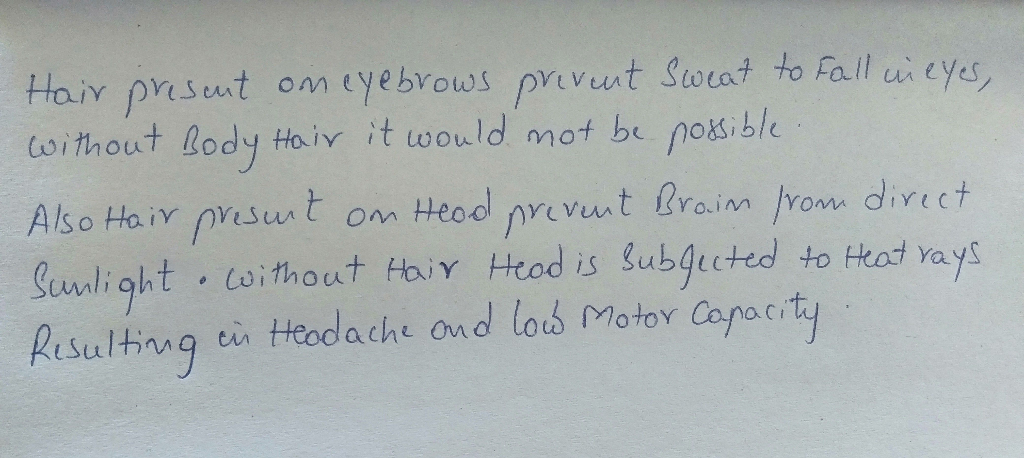 Hair present on eyebrows prevent Sweat to Fall in eyes,
without Body Hair it would not be possible.
Also Hair present on Head prevent Brain from direct
Sunlight. without Hair Head is Subjected to Heat rays
Resulting in Headache and low Motor Capacity.